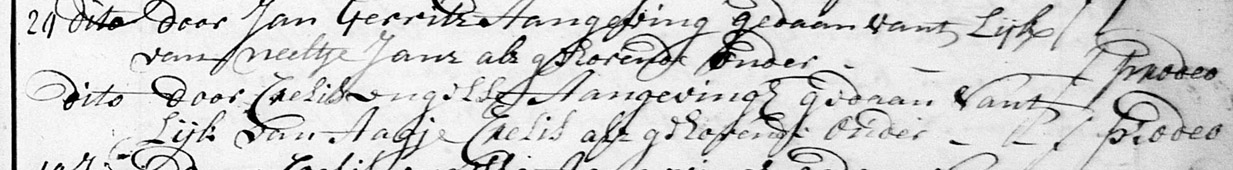 29 dito door Jan Gerritz Aangeving gedaan vant Lijk
van neeltje Janz als gehorende onder - - prodeo
dito door Crelis Engelsz Aangeving gedaan vant
Lijk van Aagje Crelis als gehorende onder - - prodeo